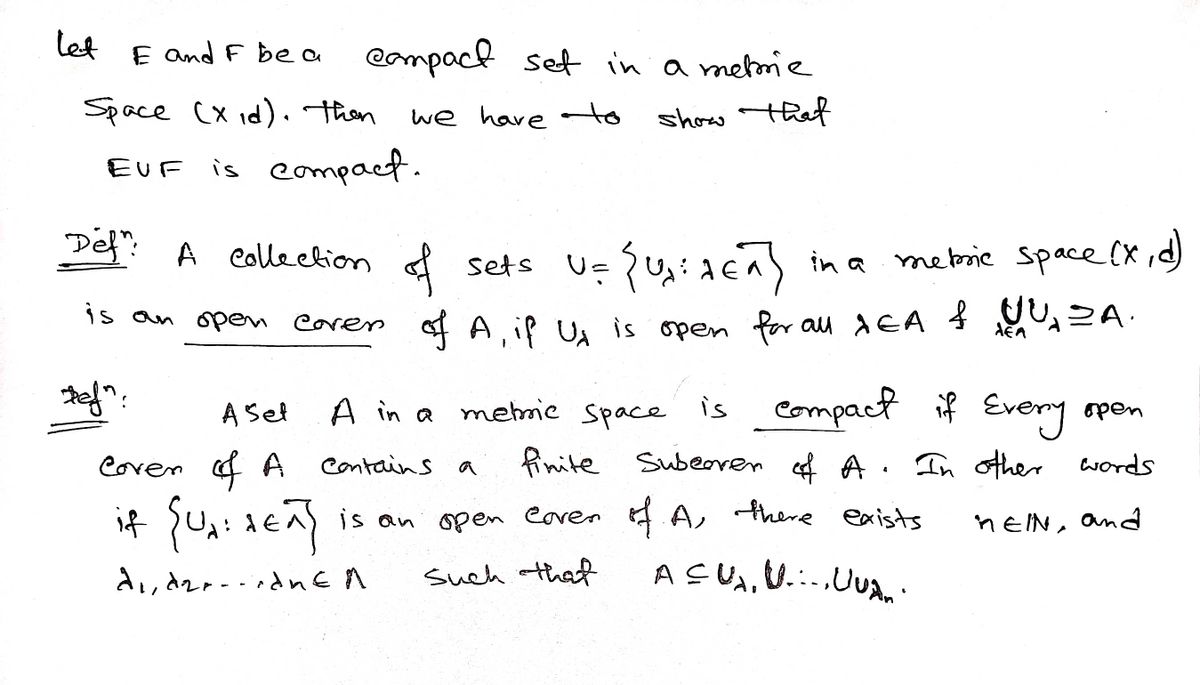 Let E and F be a compact set in a metric
Space (X,d). Then we have to show that
E∪F is compact.
Defⁿ: A collection of sets U = {U_λ : λ ∈ Λ} in a metric space (X,d)
is an open cover of A, if U_λ is open for all λ ∈ A & ⋃_{λ∈Λ} U_λ ⊇ A.
Defⁿ: A Set A in a metric space is compact if Every open
cover of A contains a finite Subcover of A. In other words
if {U_λ : λ ∈ Λ} is an open cover of A, there exists n ∈ ℕ, and
λ₁, λ₂, ---, λn ∈ Λ such that A ⊆ U_λ₁ ∪ ..., ∪ U_λn.